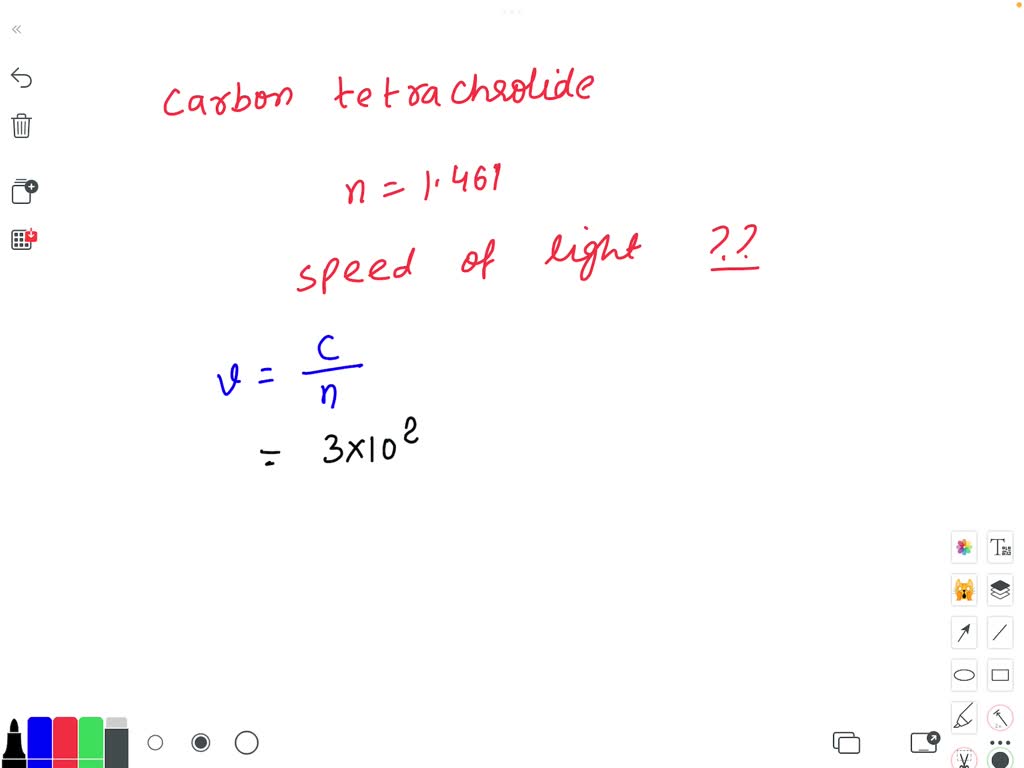 carbon tetrachrolide
n = 1.461
speed of light ??
v = c/n
= 3×10²